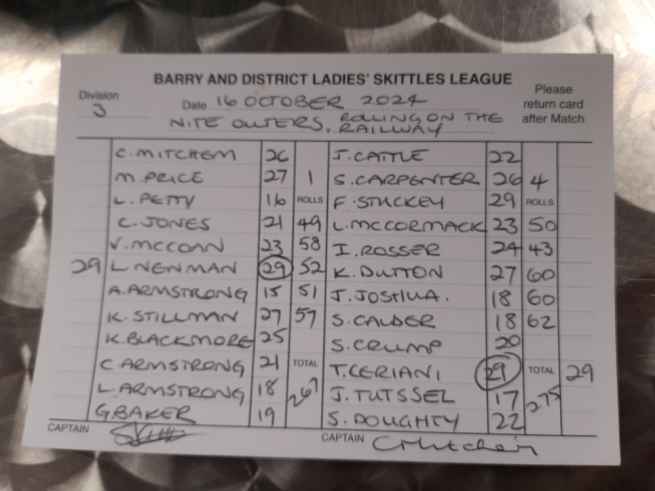 BARRY AND DISTRICT LADIES' SKITTLES LEAGUE
Division 3 Date 16 OCTOBER 2024 Please return card after Match
NITE OWTERS. ROLLING ON THE RAILWAY
C. MITCHEM 26 J. CATTLE 22
M. PRICE 27 1 S. CARPENTER 26 4
L. PETTY 16 ROLLS F. STUCKEY 29 ROLLS
C. JONES 21 49 L. MCCORMACK 23 50
V. MCCONN 23 58 I. ROSSER 24 43
29 L. NEWMAN 29 52 K. DUTTON 27 60
A. ARMSTRONG 15 51 J. JOSHUA. 18 60
K. STILLMAN 27 57 S. CALDER 18 62
K. BLACKMORE 25 S. CRUMP 20
C ARMSTRONG 21 TOTAL T. CERIANI 29 TOTAL 29
L. ARMSTRONG 18 267 J. TUTSSEL 17 275
G. BAKER 19 S. DOUGHTY 22
CAPTAIN CAPTAIN CMitchem